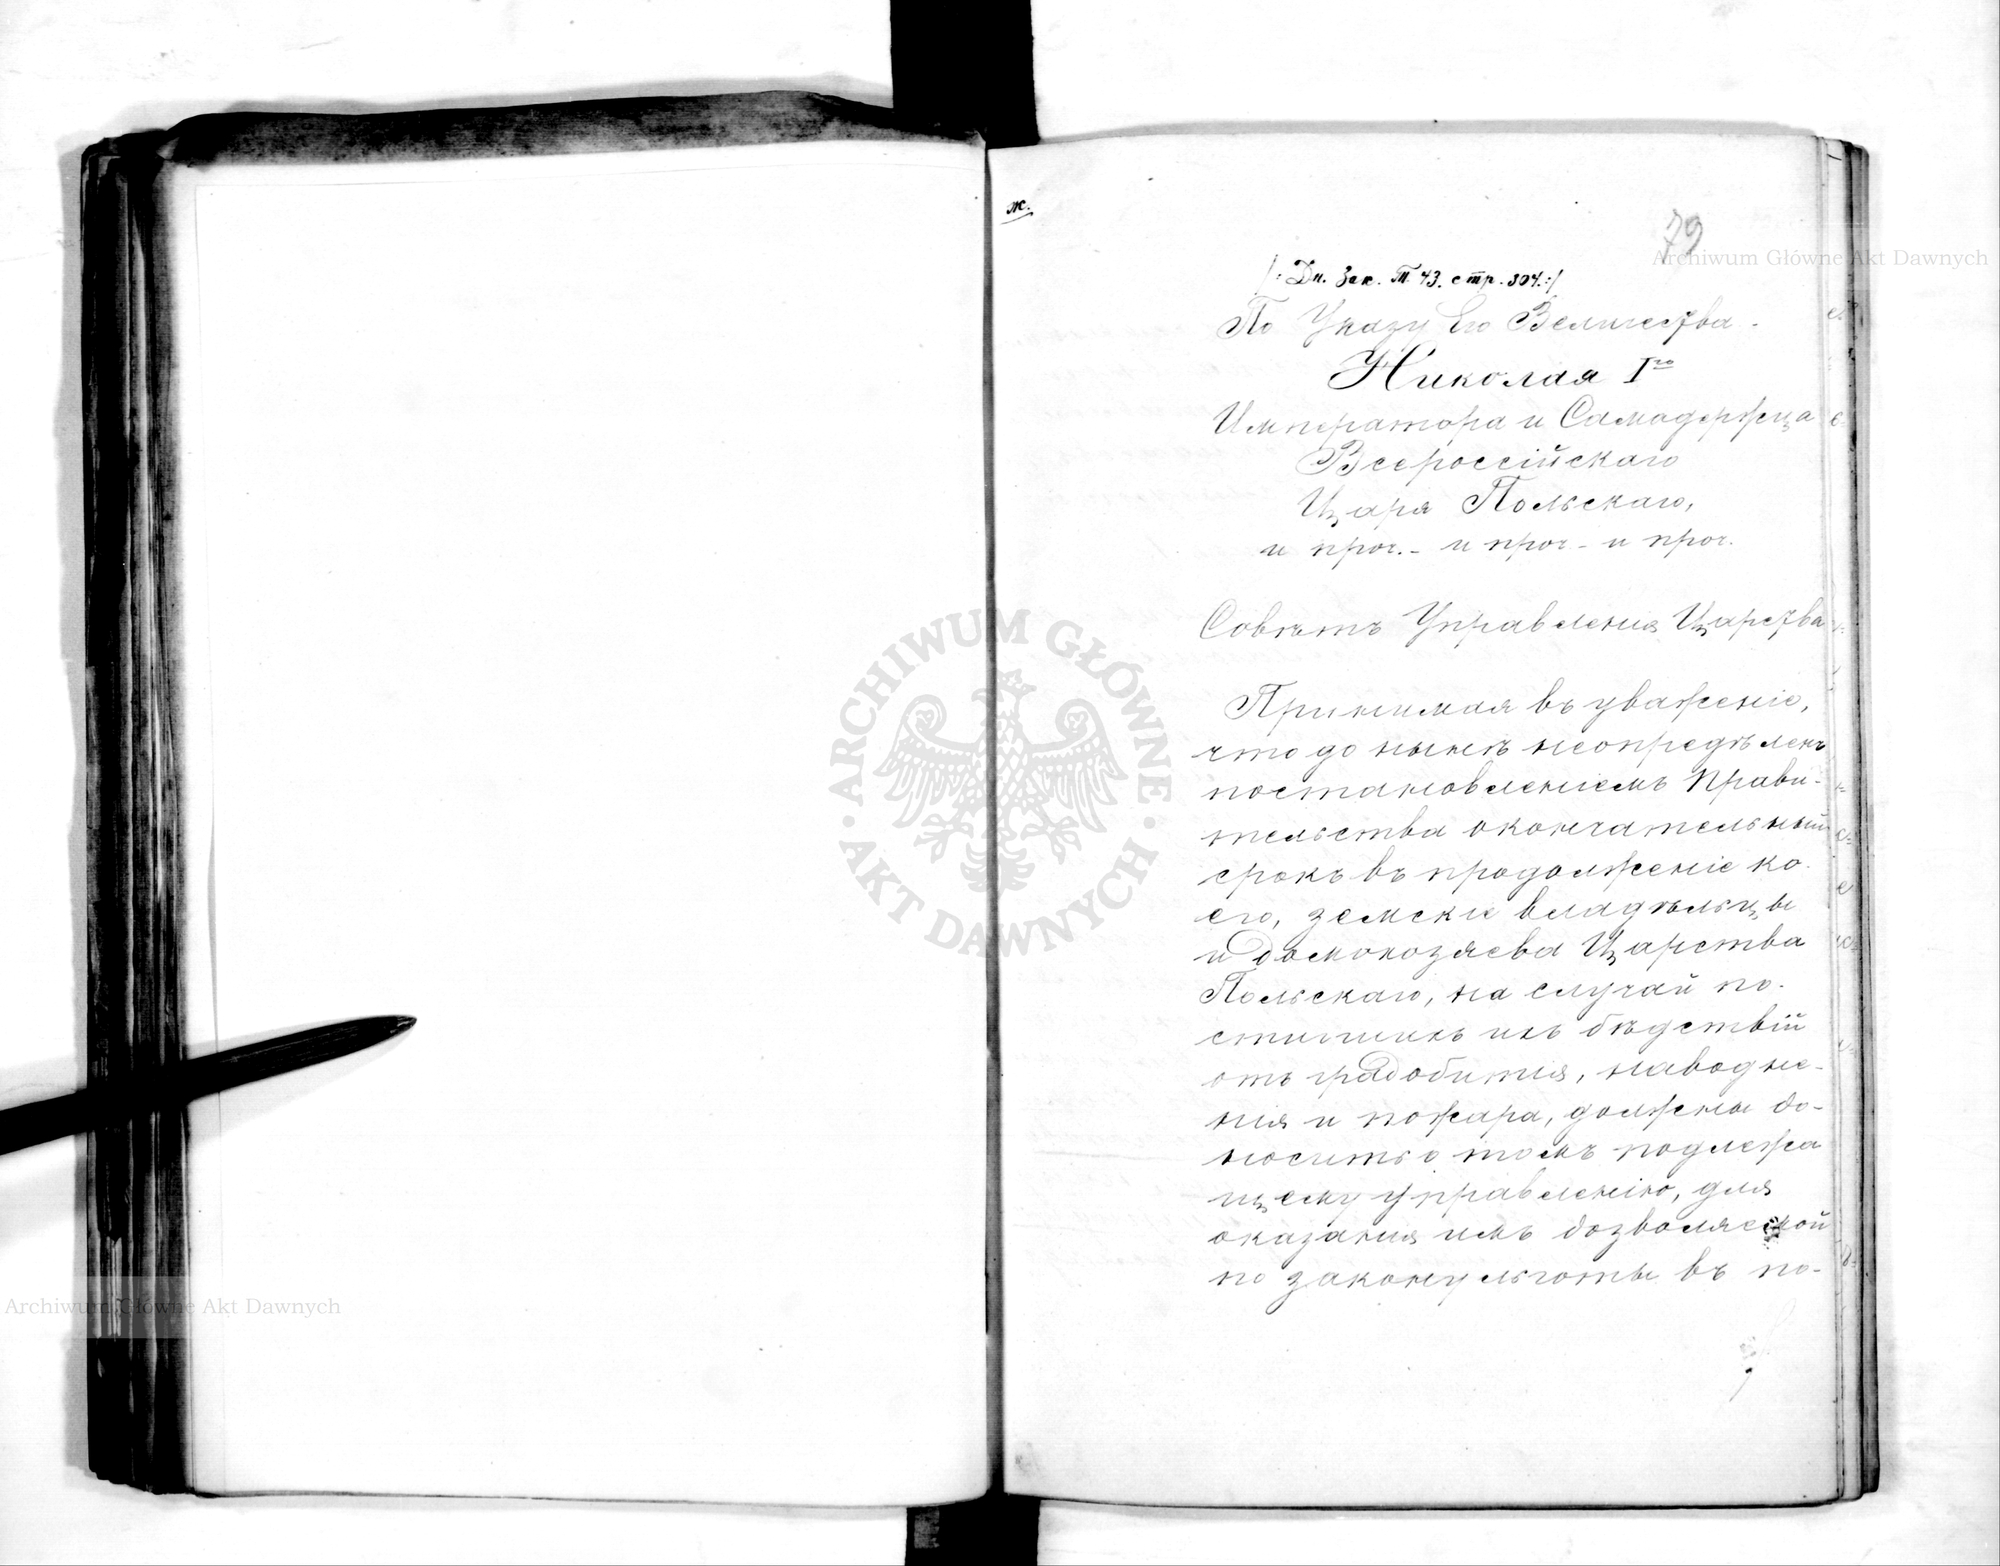 ж.
79
/: Дн. Зак. Т. 43. стр. 304. :/
По Указу Его Величества.
Николая Iго
Императора и Самодержца
Всероссійскаго
Царя Польскаго,
и проч. - и проч - и проч.
Совѣтъ Управленія Царства
Принимая въ уваженіе,
что до нынѣ неопредѣленъ
постановленіемъ Прави-
тельства окончательный
срокъ въ продолженіе ко-
его, земскіе владѣльцы
и домохозяева Царства
Польскаго, на случай по-
стигшихъ ихъ бѣдствій
отъ градобитія, наводне-
нія и пожара, должны до-
носить о томъ подлежа
щему управленію, для
оказанія имъ дозволяемой
по закону льготы въ по-
ARCHIWUM GŁÓWNE · AKT DAWNYCH ·
Archiwum Główne Akt Dawnych
Archiwum Główne Akt Dawnych